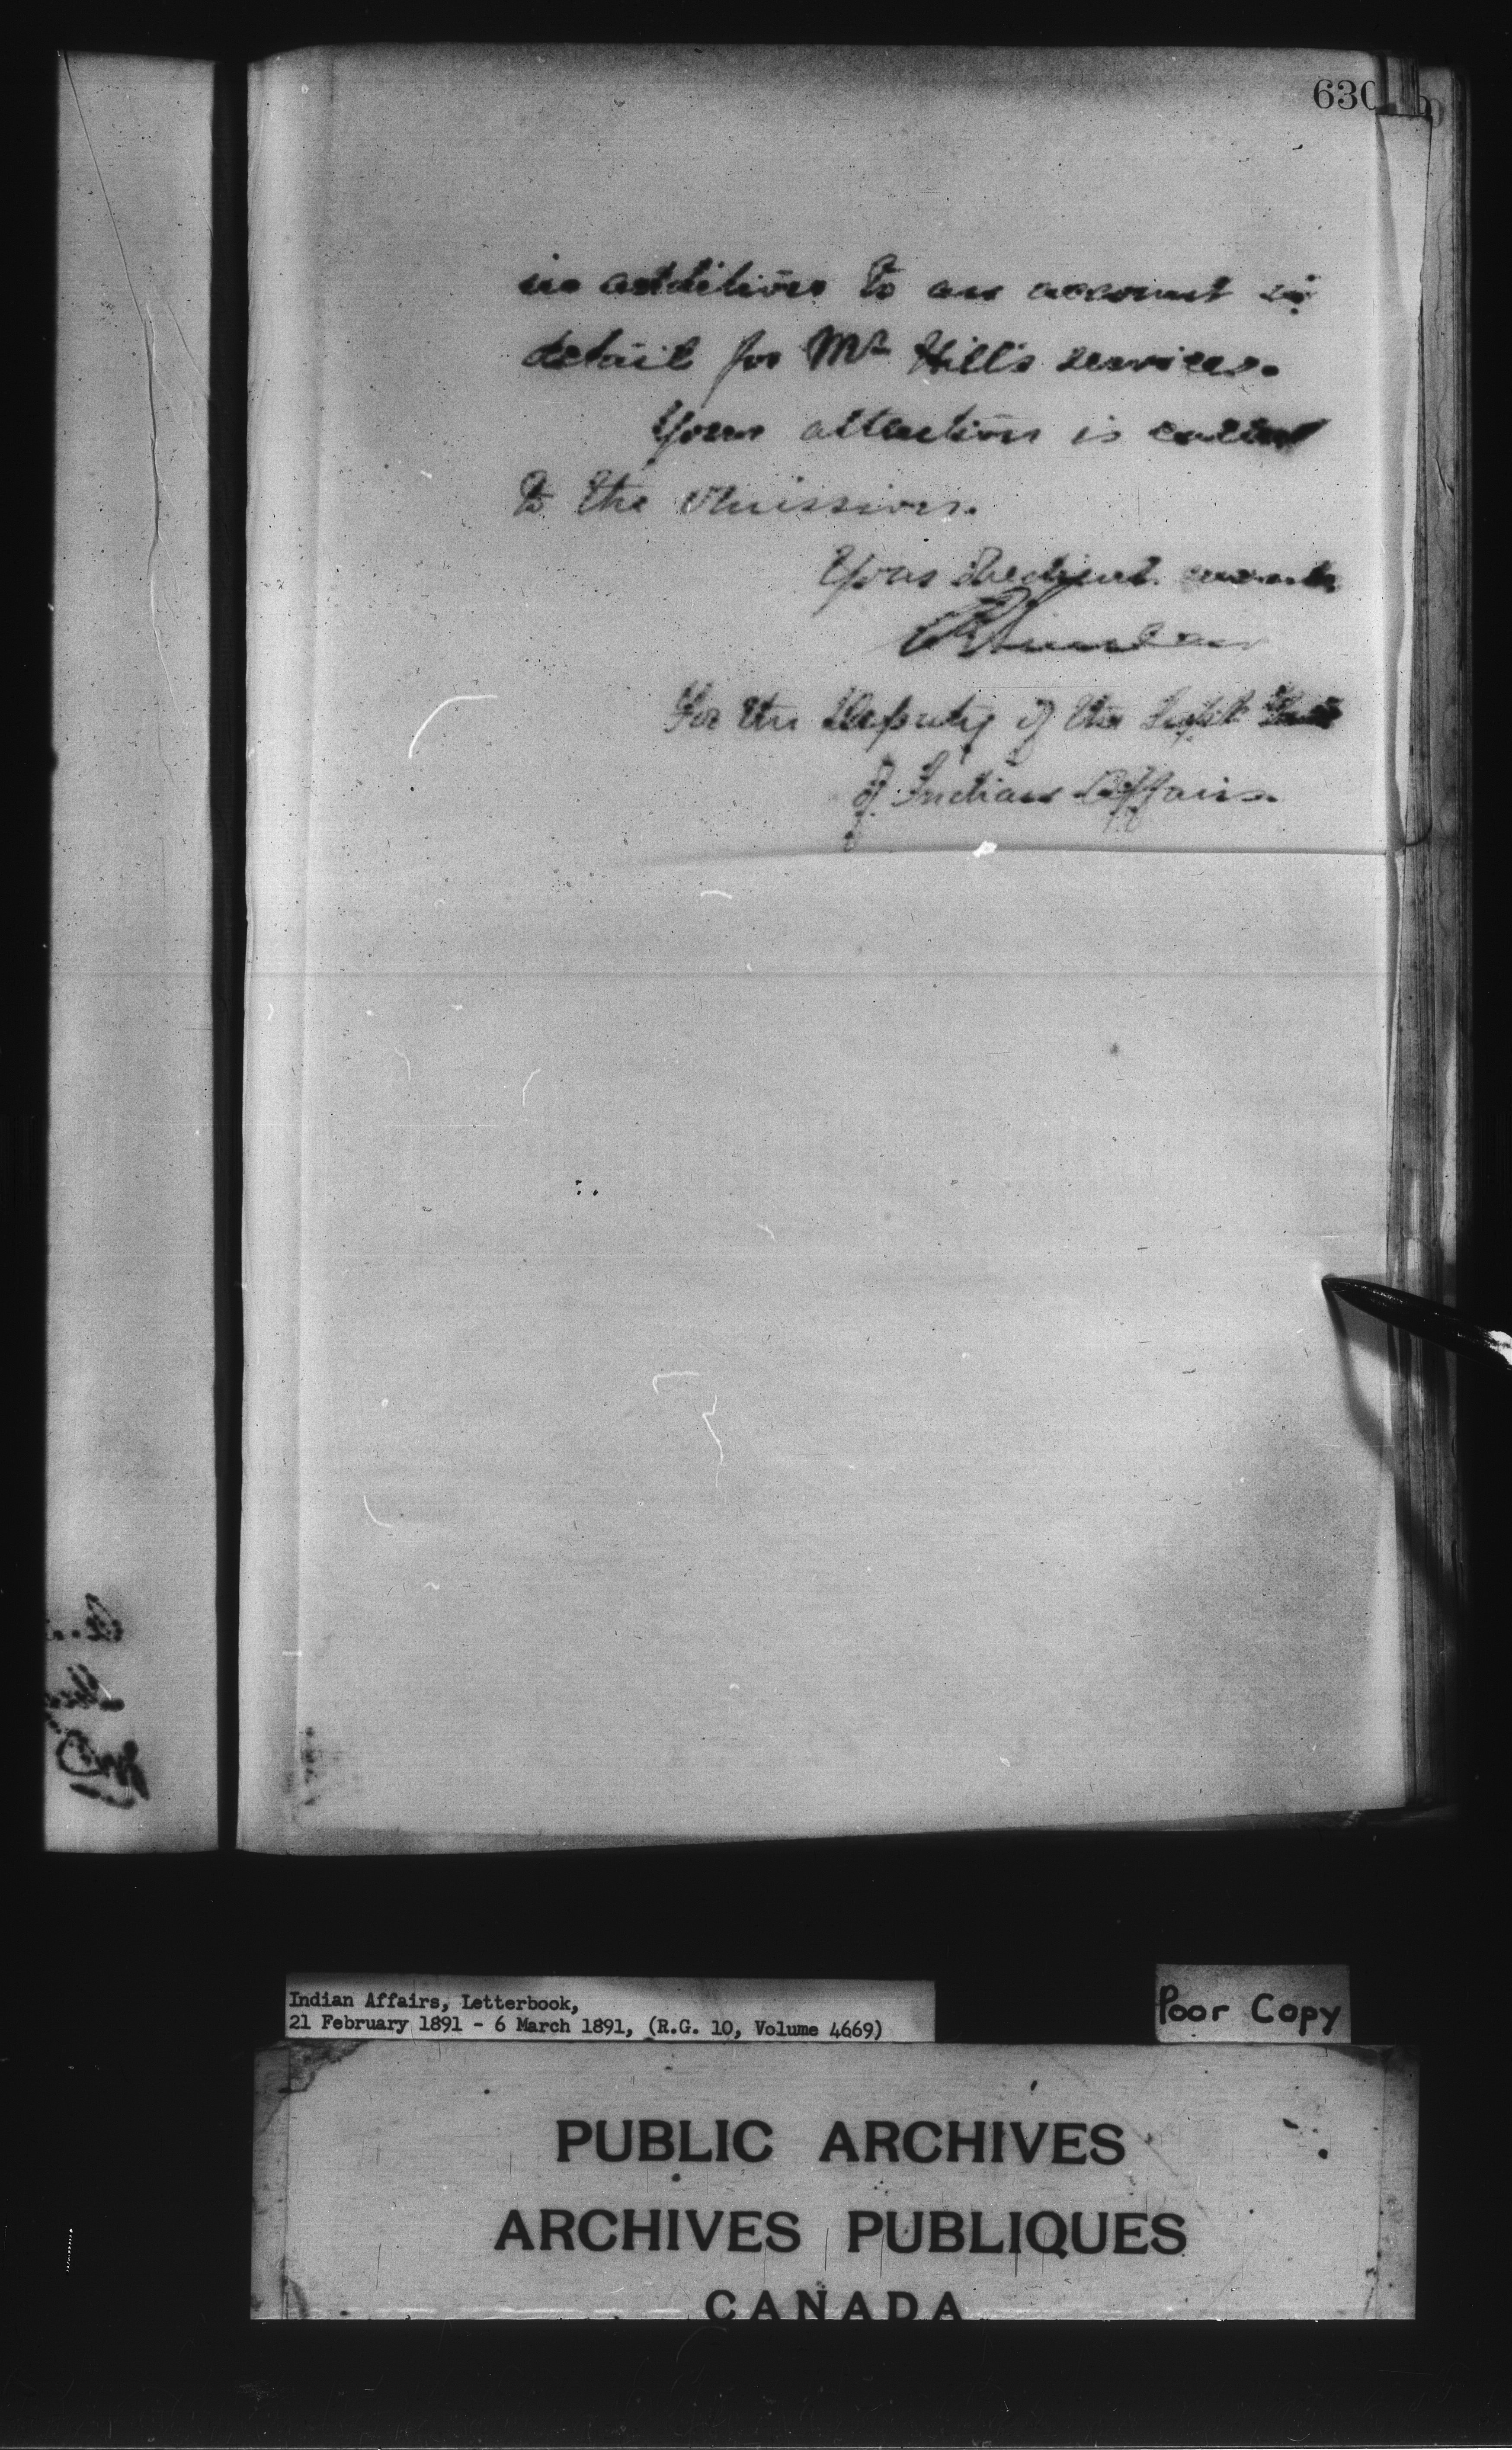 630
in addition to an account in
detail for Mr Hill's services.
Your attention is called
to the omission.
Your obedient servant
For the Deputy of the Supt Genl
of Indian Affairs.
Indian Affairs, Letterbook,
21 February 1891 - 6 March 1891, (R.G. 10, Volume 4669)
Poor Copy
PUBLIC ARCHIVES
ARCHIVES PUBLIQUES
CANADA